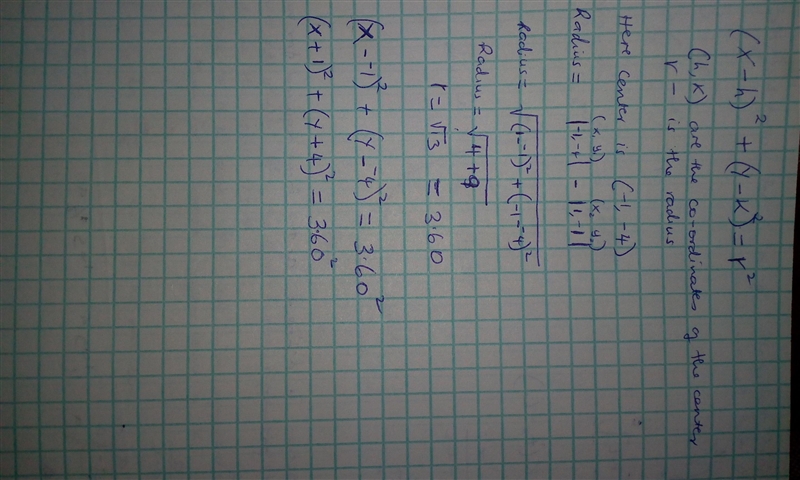 (x-h)² + (y-k²) = r²
(h,k) are the co-ordinates of the center
r - is the radius
Here center is (-1, -4)
(x, y,) (x, y,)
Radius = |-1,-4| - |1,-1|
Radius = √(1--1)² + (-1--4)²
Radius = √4+9
r = √13 = 3.60
(x--1)² + (y--4)² = 3.60²
(x+1)² + (y+4)² = 3.60²